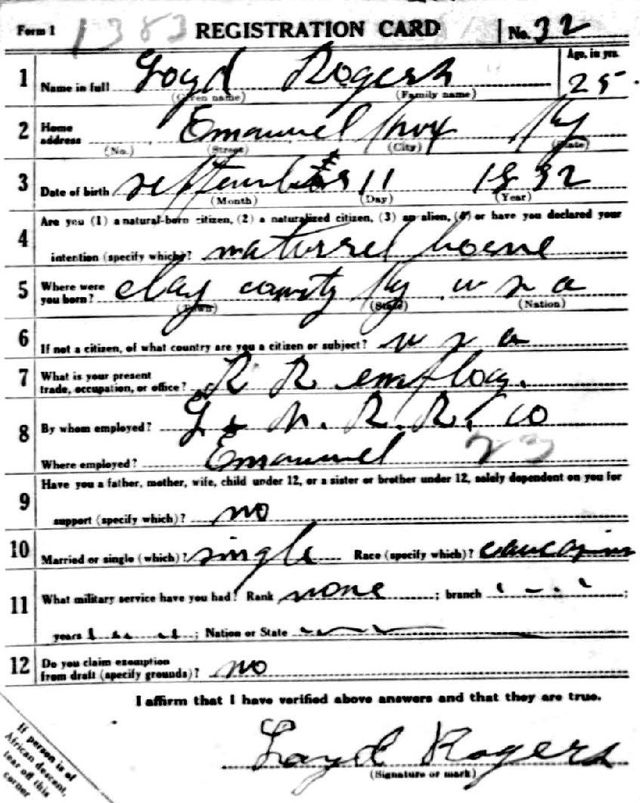 Form 1 1383 REGISTRATION CARD No. 32
1 Name in full Loyd Rogers Age, in yrs. 25
(Given name) (Family name)
2 Home address Emanuel Knox Ky
(No.) (Street) (City) (State)
3 Date of birth September 11 1892
(Month) (Day) (Year)
4 Are you (1) a natural-born citizen, (2) a naturalized citizen, (3) an alien, (4) or have you declared your
intention (specify which)? naturrel borne
5 Where were you born? Clay county Ky u s a
(Town) (State) (Nation)
6 If not a citizen, of what country are you a citizen or subject? u s a
7 What is your present trade, occupation, or office? R R employ.
8 By whom employed? L & N. R. R. Co
Where employed? Emanuel 23
9 Have you a father, mother, wife, child under 12, or a sister or brother under 12, solely dependent on you for
support (specify which)? no
10 Married or single (which)? single Race (specify which)? caucasian
11 What military service have you had? Rank none ; branch
years ; Nation or State
12 Do you claim exemption from draft (specify grounds)? no
I affirm that I have verified above answers and that they are true.
Loyd Rogers
(Signature or mark)
If person is of
African descent,
tear off this
corner